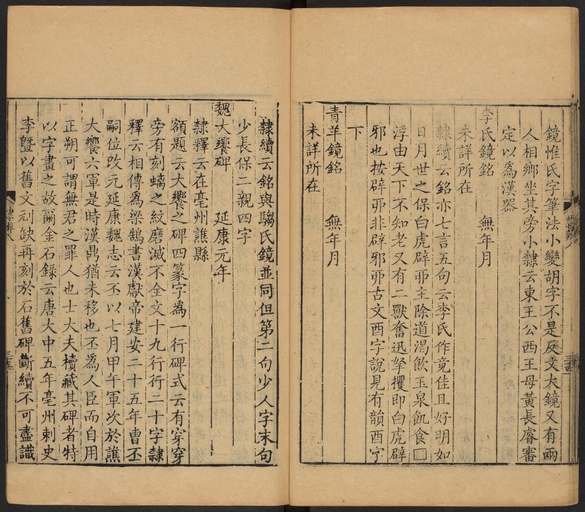 鏡惟氏字筆法小變胡字不是反文大鏡又有兩
人相鄉坐其旁小隸云東王公西王母黃長睿審
定以為漢器
李氏鏡銘　無年月
未詳所在
隸續云銘亦七言五句云李氏作竟佳且好明如
日月世之保白虎辟邪主除道渴飲玉泉飢食□
浮由天下不知老又有二獸奮迅拏攫即白虎辟
邪也按辟邪非辟邪邪古文酉字說見有韻酉字
下
青羊鏡銘　無年月
未詳所在
隸續云銘與騶氏鏡並同但第二句少人字末句
少長保二親四字
魏大饗碑　延康元年
隸釋云在亳州譙縣
額題云大饗之碑四篆字為一行碑式云有穿穿
旁有刻螭之紋磨滅不全文十九行行二十字隸
釋云相傳為梁鵠書漢獻帝建安二十五年曹丕
嗣位改元延康魏志云丕以七月甲午軍次於譙
大饗六軍是時漢鼎猶未移也丕為人臣而自用
正朔可謂無君之罪人也士大夫櫝藏其碑者特
以字畫之故爾金石錄云唐大中五年亳州刺史
李暨以舊文刓缺再刻於石舊碑斷續不可盡識